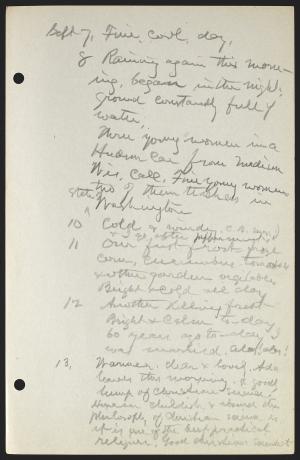 Sept 7, Fine, cool, day,
8 Raining again this morn-
ing, began in the night;
ground constantly full of
water,
Three young women in a
Hudson car from Madison
Wis, call, Fine young women
two of them teachers in
State,
Washington
10 Cold & windy,
11 Our first frost
corn, cucumbers tomatoes
& other garden vegetables
Bright & cold all day
12 Another killing frost
Bright & calm to-day
60 years ago to-day I
was married, alas, alas!
13, Warmer, clear & lovely, Ada
leaves this morning. A good
of Christian Science,
childish & absurd
philosophy of Christian science is
it is one of the best practical
religions, Good Christian Scientist